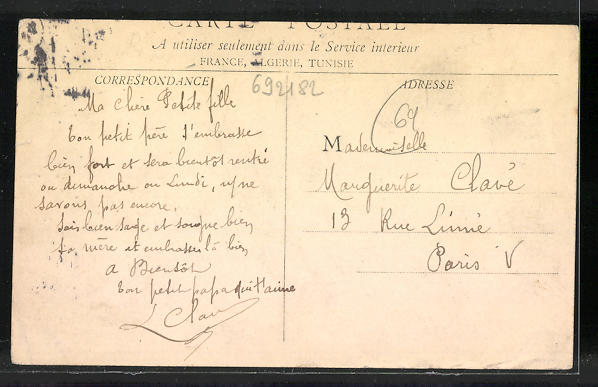 CARTE POSTALE
A utiliser seulement dans le Service interieur
FRANCE, ALGERIE, TUNISIE
CORRESPONDANCE
692182
ADRESSE
67
Ma Chère Petite fille
ton petit père t'embrasse
bien fort et sera bientôt rentré
ou dimanche ou Lundi, je ne
savons pas encore.
Sois bien sage et soigne bien
ta mère et embrasse là bien
a Bientôt
ton petit papa qui t'aime
L Clavé
Mademoiselle
Marguerite Clavé
13 Rue Linné
Paris V